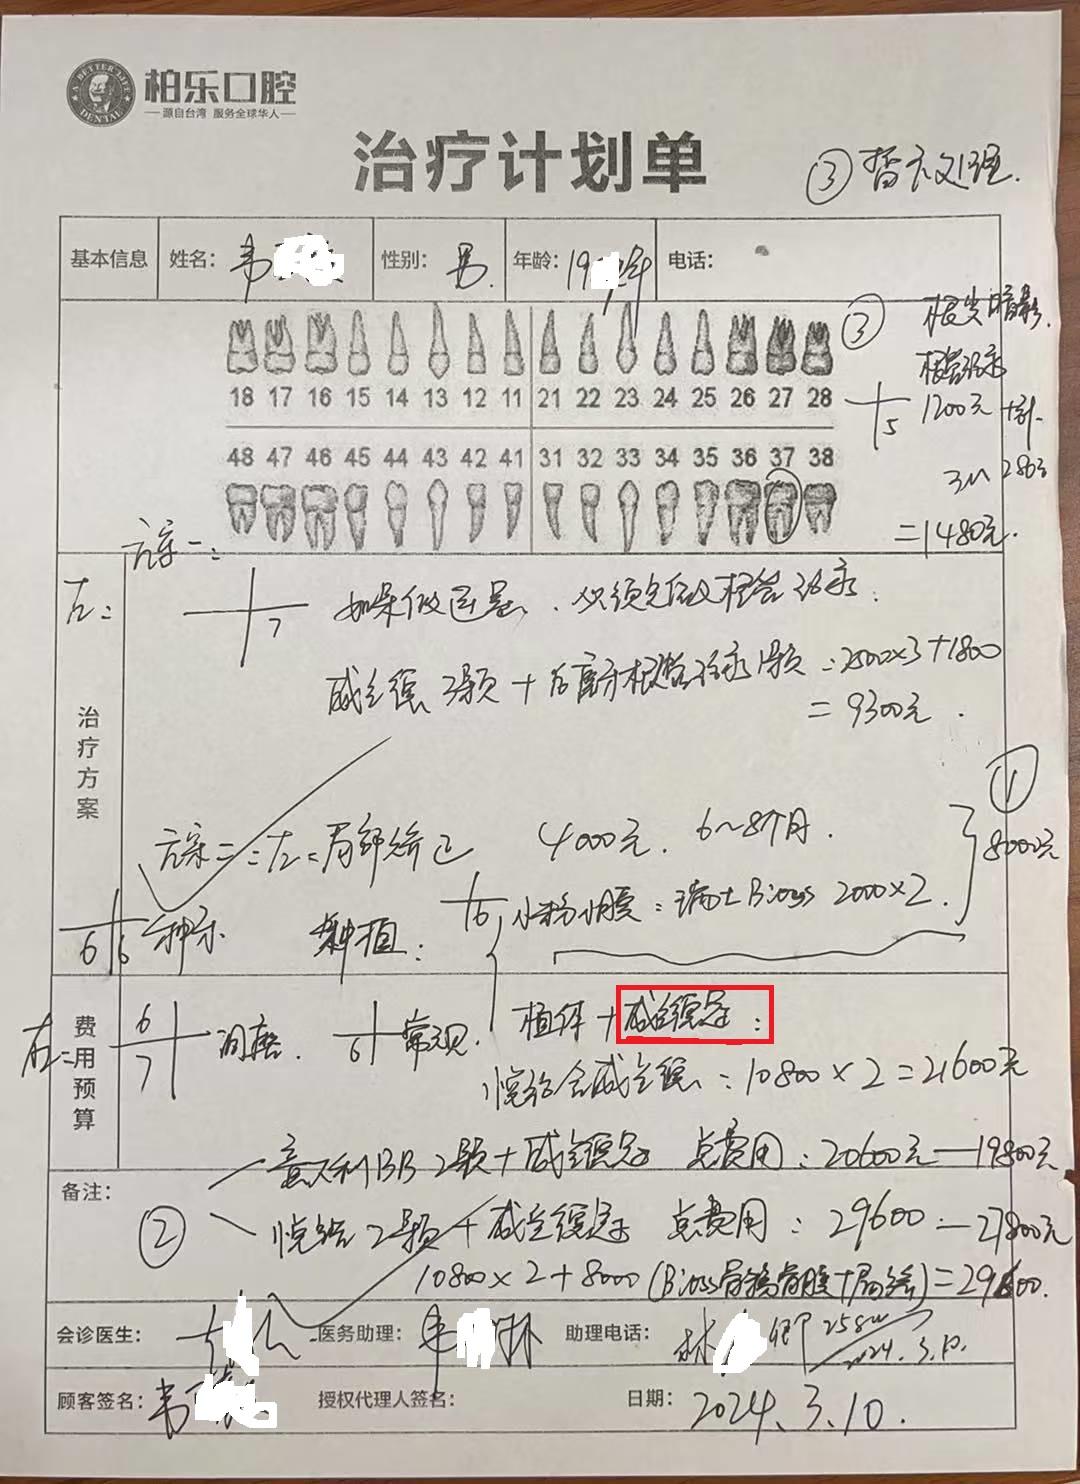 A BETTER LIFE DENTAL
柏乐口腔
源自台湾 服务全球华人
治疗计划单
③ 暂不处理.
基本信息 姓名: 韦 性别: 男. 年龄: 19 年 电话:
18 17 16 15 14 13 12 11 21 22 23 24 25 26 27 28
48 47 46 45 44 43 42 41 31 32 33 34 35 36 37 38
③ 根尖暗影.
根管治疗
5 1200元 +
280元
=1480元.
方案一:
左: 7 如果做固, 必须先做根管治疗.
威兰德 3颗 + 后离子根管治疗1颗 =2500×3+1800
=9300元.
治疗方案
方案二: 左: 局部矫正 4000元. 6~8个月.
① 8000元
6 小粉小膜: 瑞士Bioss 2000×2.
6 6 种牙 种植:
费用预算
右: 6 7 调磨. 6 常规. 植体+威兰德冠:
悦纳会威兰德: 10800×2=21600元
意大利BB 2颗+威兰德冠 总费用: 20600元—19800元
备注:
② 悦纳2颗+威兰德冠 总费用: 29600—27800元
10800×2+8000 (Bioss骨粉骨膜+局矫)=29600.
会诊医生: 医务助理: 韦 林 助理电话: 林 卿 2024.3.10.
顾客签名: 韦 授权代理人签名: 日期: 2024.3.10.